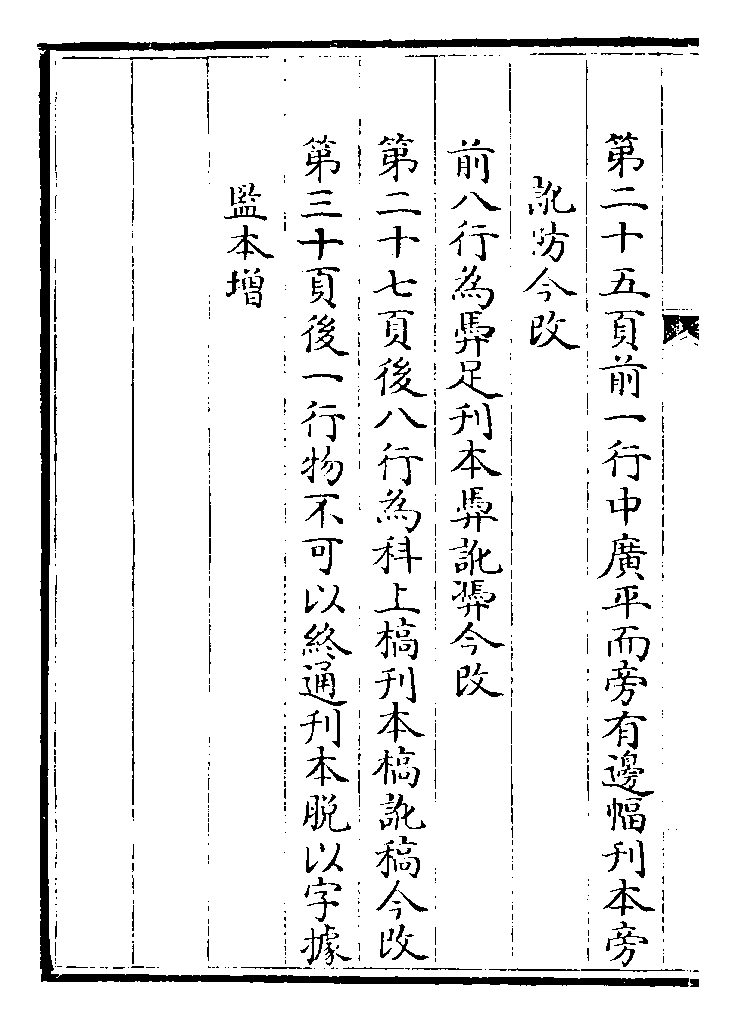 第二十五頁前一行中廣平而旁有邊幅刊本旁
訛妨今改
前八行為馵足刊本馵訛今改
第二十七頁後八行為科上槁刊本槁訛稿今改
第三十頁後一行物不可以終通刊本脫以字據
監本增